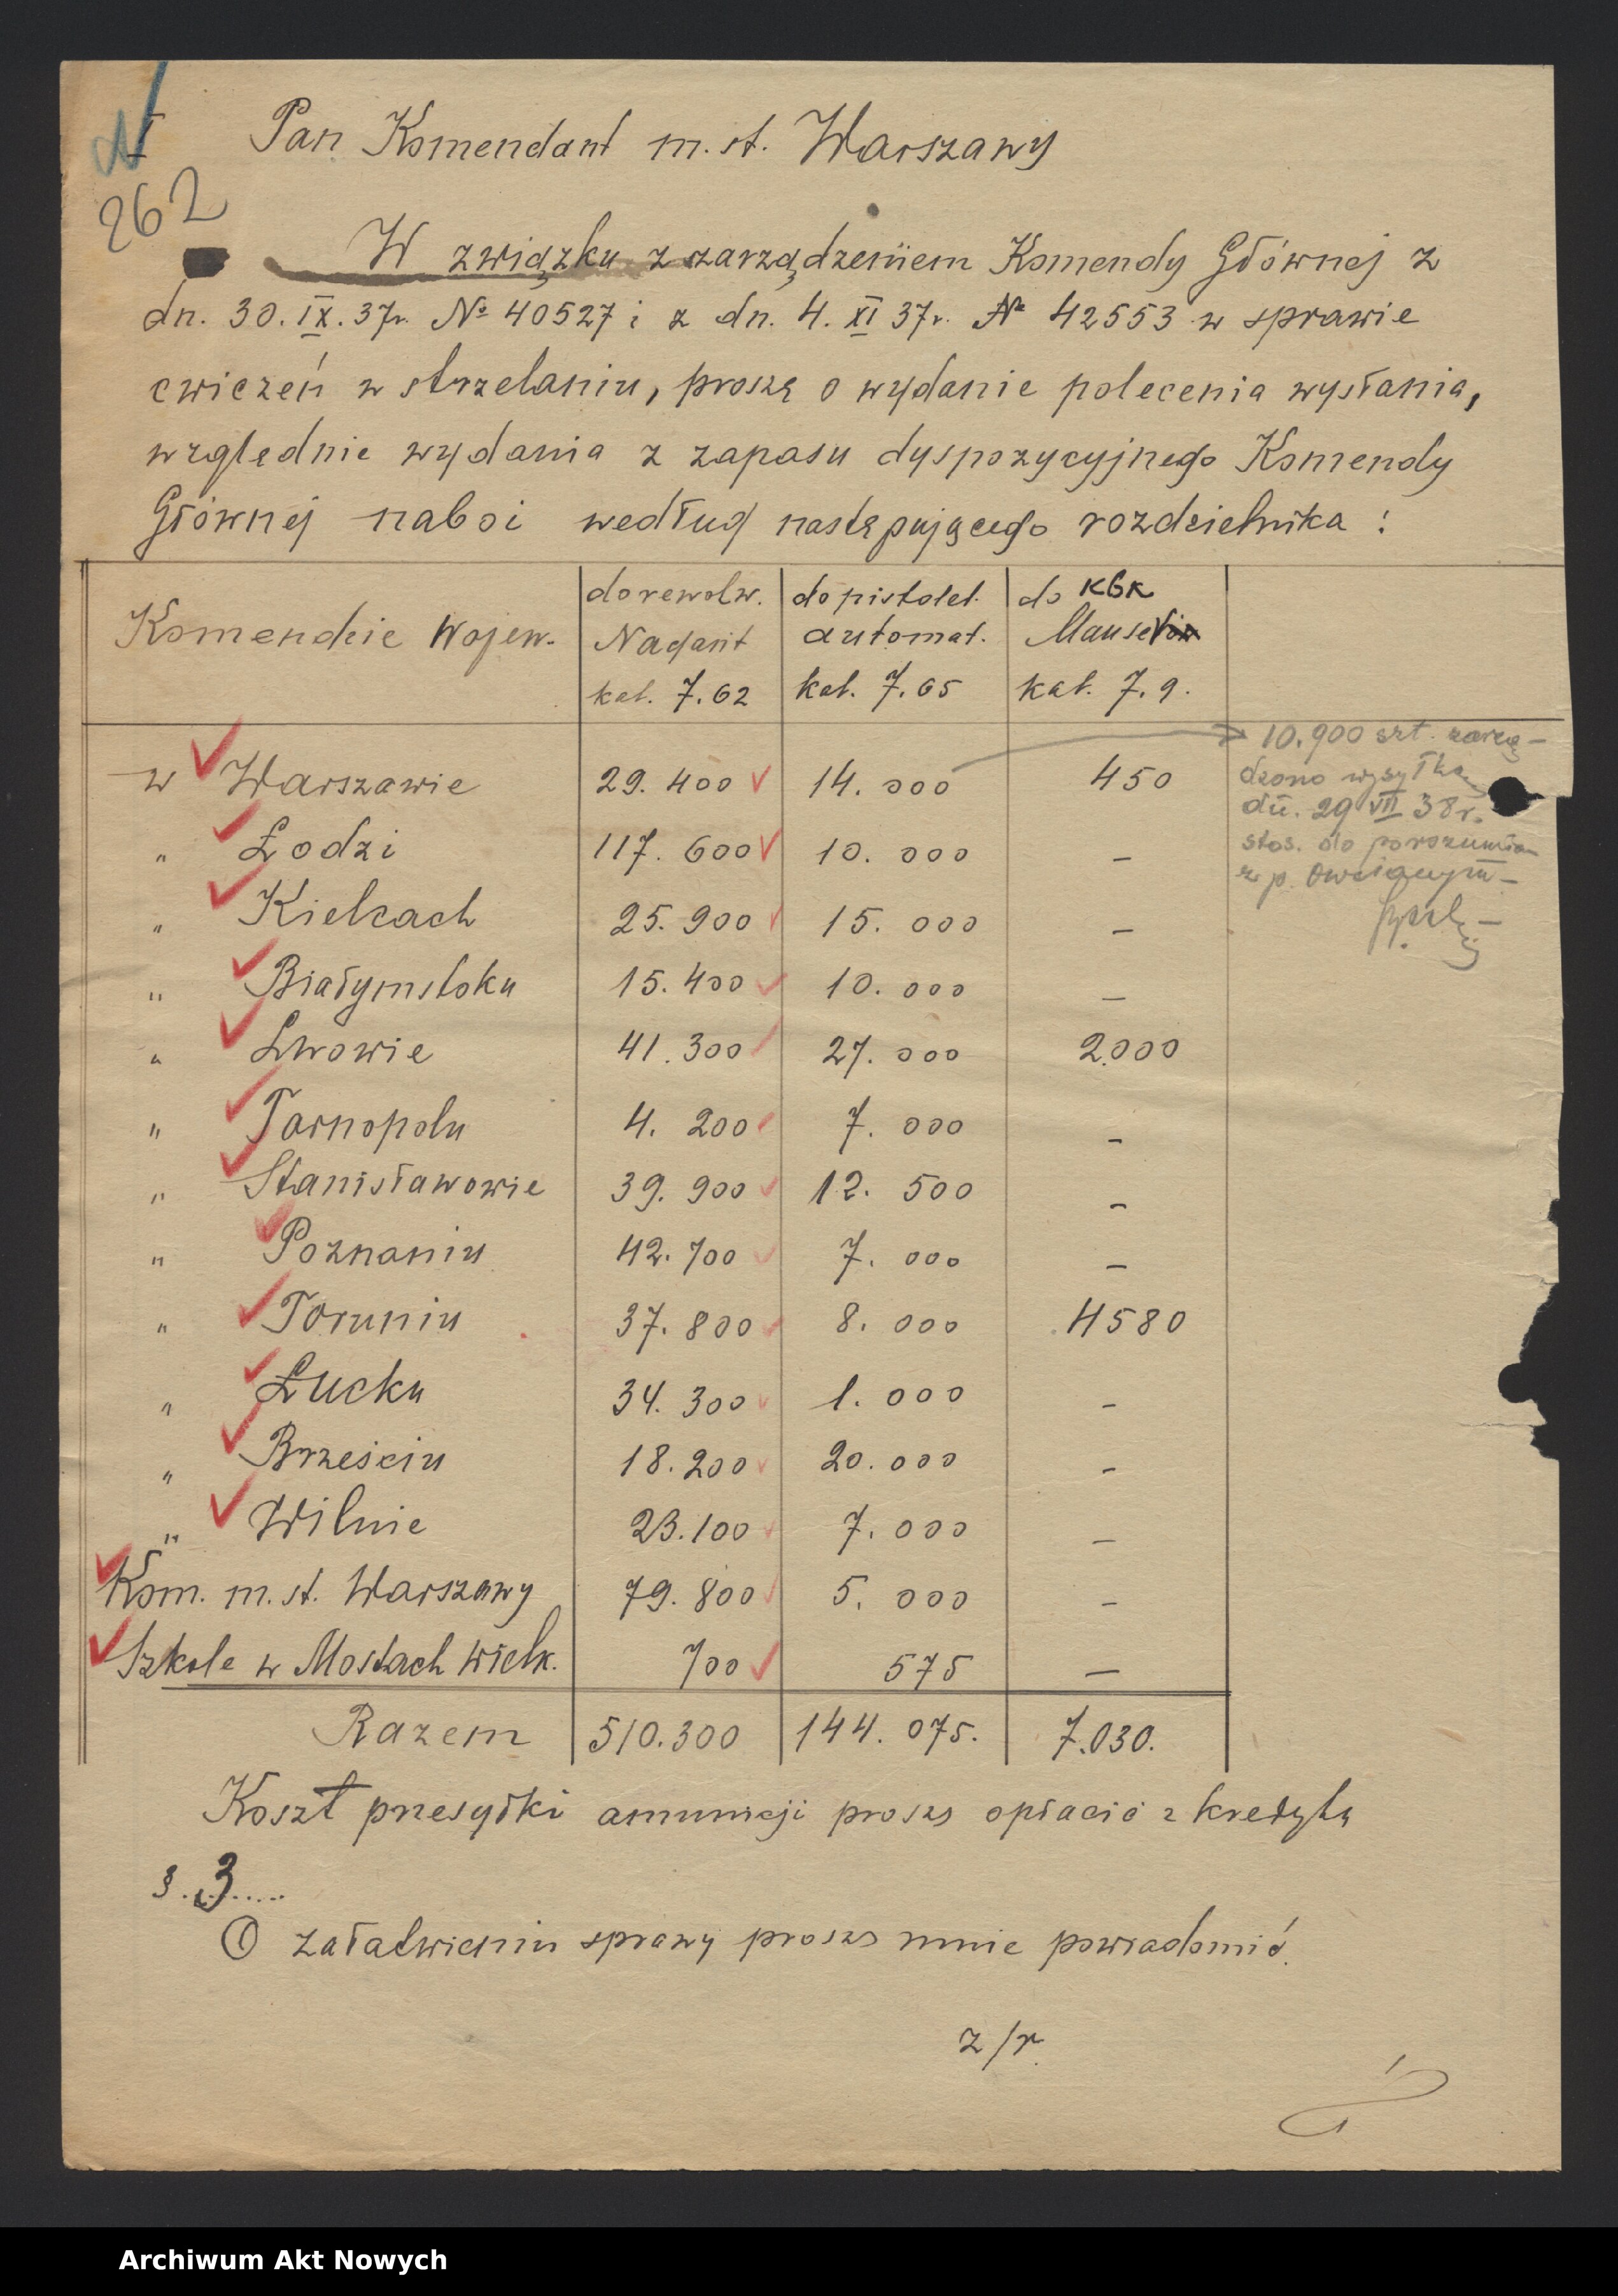 I
262
Pan Komendant m. st. Warszawy
W związku z zarządzeniem Komendy Głównej z
dn. 30. IX. 37r. № 40527 i z dn. 4. XI 37r. № 42553 w sprawie
cwiczeń w strzelaniu, proszę o wydanie polecenia wysłania,
względnie wydania z zapasu dyspozycyjnego Komendy
Głównej naboi według następującego rozdzielnika :
Komendzie Wojew. do rewolw. Nagant kal. 7.62 do pistolet. automat. kal. 7.65 do KbK Mauser kal. 7.9.
w Warszawie 29.400 14.000 450
10.900 szt. zarzą-
dzono wysyłkę
dn. 29 VII 38r.
stos. do porozumien
z p.
" Łodzi 117.600 10.000 –
" Kielcach 25.900 15.000 –
" Białymstoku 15.400 10.000 –
" Lwowie 41.300 27.000 2.000
" Tarnopolu 4.200 7.000 –
" Stanisławowie 39.900 12.500 –
" Poznaniu 42.700 7.000 –
" Toruniu 37.800 8.000 4580
" Łucku 34.300 1.000 –
" Brześciu 18.200 20.000 –
" Wilnie 23.100 7.000 –
Kom. m. st. Warszawy 79.800 5.000 –
Szkole w Mostach Wielk. 700 575 –
Razem 510.300 144.075. 7.030.
Koszt przesyłki amunicji proszę opłacić z kredytu
§. 3.....
O załatwieniu sprawy proszę mnie powiadomić.
z/r.
Archiwum Akt Nowych